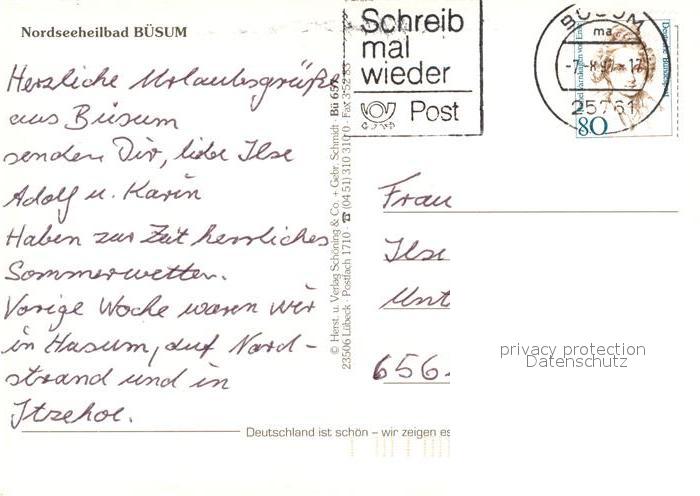 Nordseeheilbad BÜSUM
Herzliche Urlaubsgrüße
aus Büsum
senden Dir, liebe Ilse
Adolf u. Karin
Haben zur Zeit herrliches
Sommerwetter.
Vorige Woche waren wir
in Husum, auf Nord-
strand und in
Itzehoe.
© Herst. u. Verlag Schöning & Co. + Gebr. Schmidt · Bü 65
23506 Lübeck · Postfach 1710 · ☎ (04 51) 310 310 · Fax 3 52 83
Schreib
mal
wieder
Post
BÜSUM
ma
25761
Deutsche Bundespost
80
Frau
Ilse
Unt
656
privacy protection
Datenschutz
Deutschland ist schön – wir zeigen es